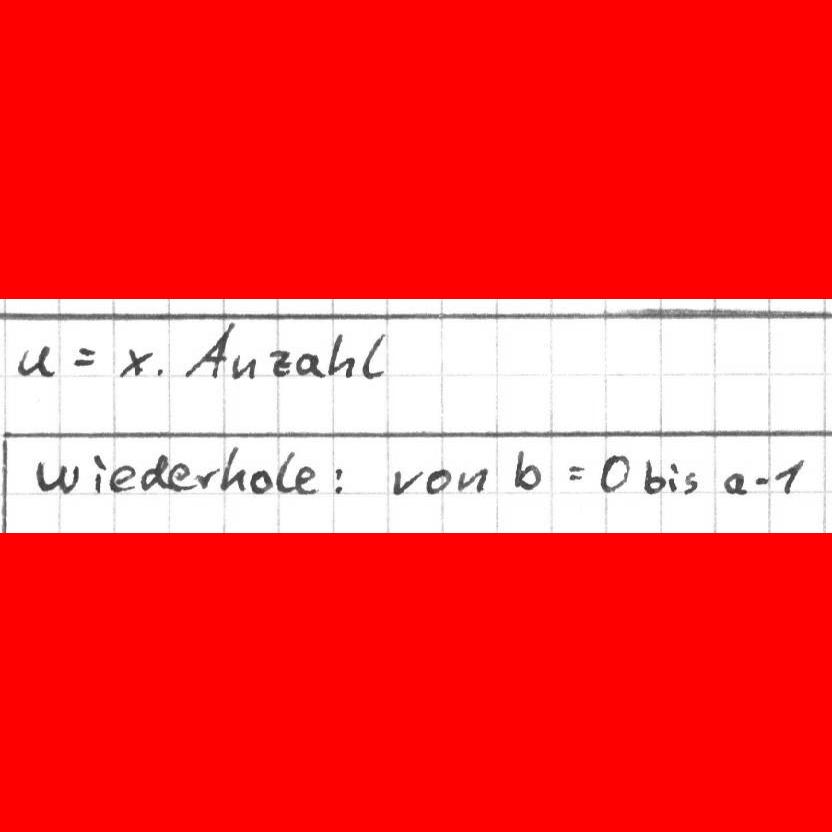 u = x. Anzahl
wiederhole: von b = 0 bis a-1